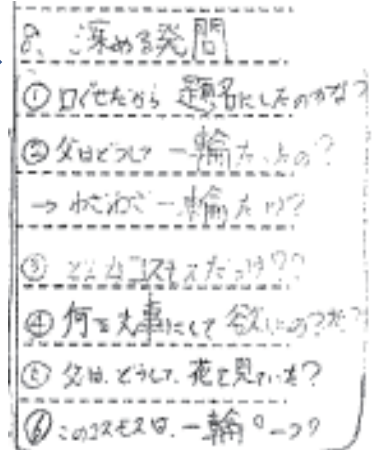 8、深める発問
① 口ぐせだから 題名にしたのかな?
② 父はどうして 一輪だったの?
→ わざわざ一輪だけ?
③ どんなコスモスだっけ??
④ 何を大事にして 欲しいの?
⑤ 父は、どうして、花を見ている?
⑥ このコスモスは、一輪の